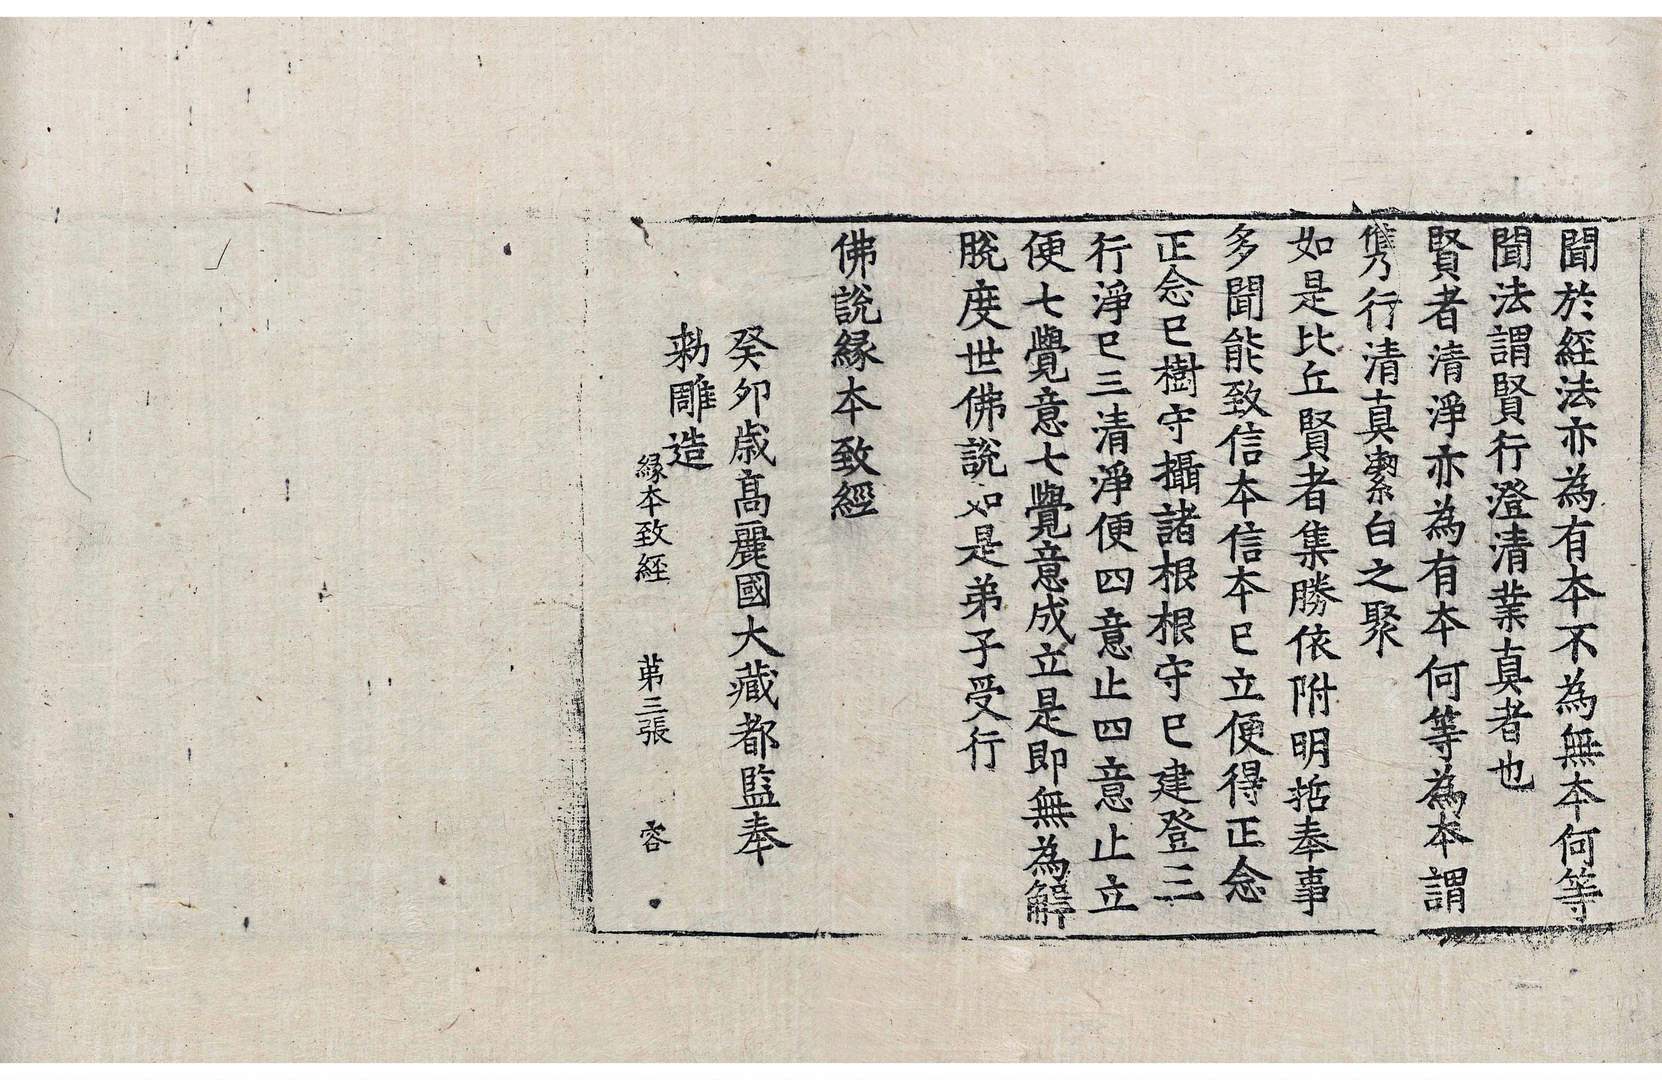 聞於經法亦為有本不為無本何等
聞法謂賢行澄清業真者也
賢者清淨亦為有本何等為本謂
雋乃行清真潔白之聚
如是比丘賢者集勝依附明哲奉事
多聞能致信本信本已立便得正念
正念已樹守攝諸根根守已建登三
行淨已三清淨便四意止四意止立
便七覺意七覺意成立是即無為解
脫度世佛說如是弟子受行
佛說緣本致經
癸卯歲高麗國大藏都監奉
勑雕造
緣本致經 苐三張 容